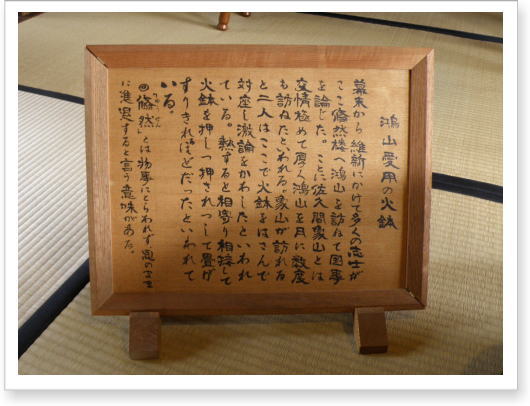 鴻山愛用の火鉢
幕末から維新にかけて多くの志士が
ここ翛然楼へ鴻山を訪ねて国事
を論じた。ことに佐久間象山とは
交情極めて厚く鴻山を月に数度
も訪ねたといわれる。象山が訪れる
と二人はここで火鉢をはさんで
対座し激論をかわしたといわれ
ている。熱すると相寄り相接して
火鉢を押しつ押されつして畳が
すりきれるほどだったといわれて
いる。
◎翛然とは物事にとらわれず、思のまま
に進退すると言う意味がある。